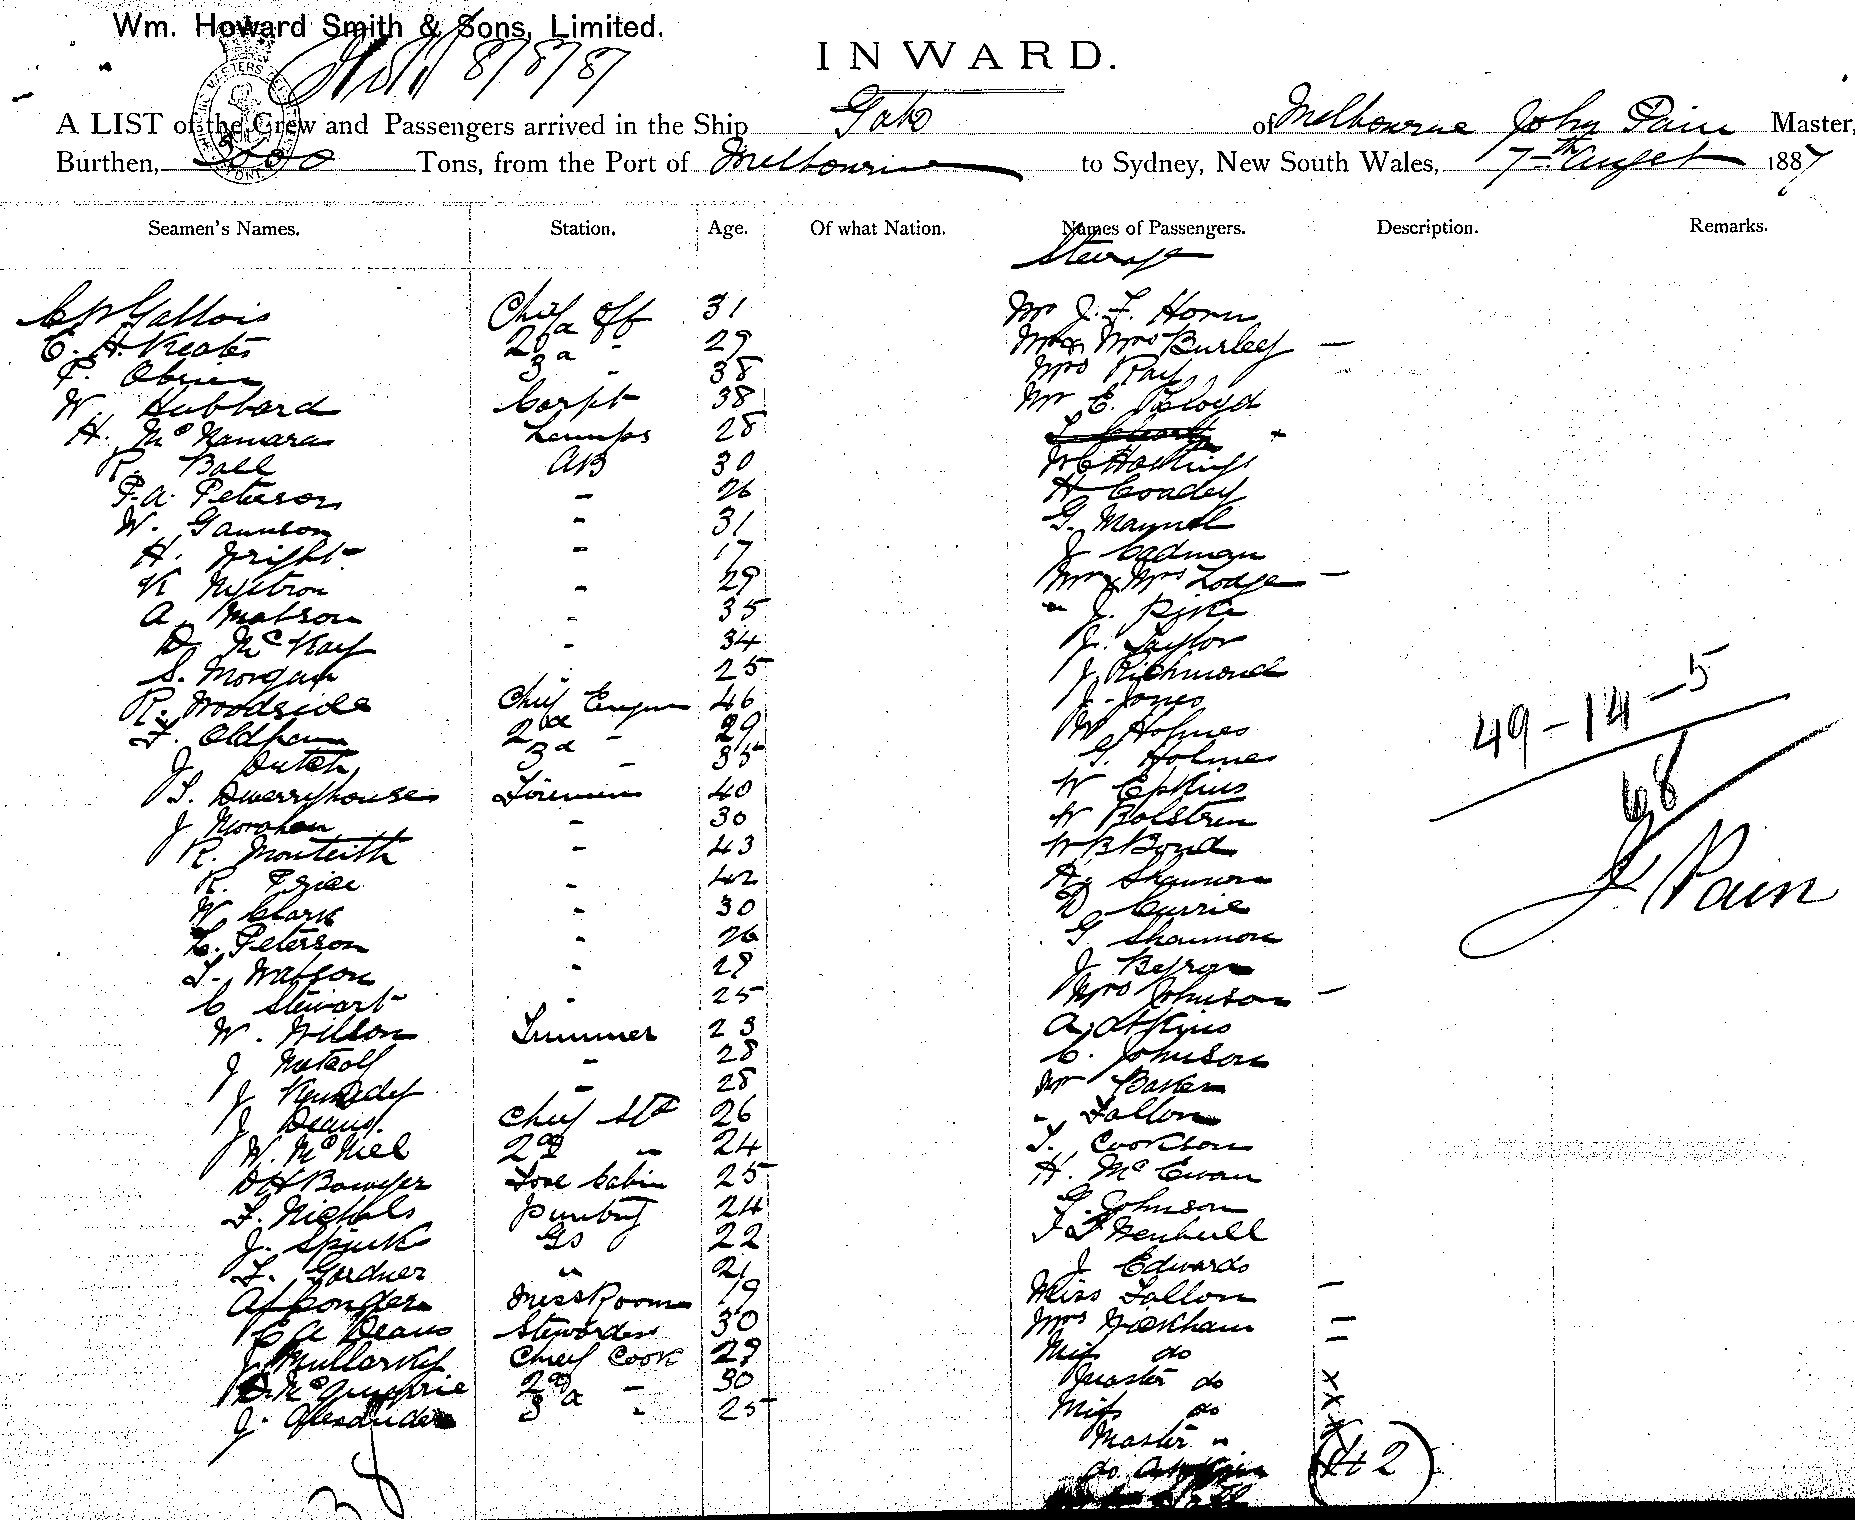 Wm. Howard Smith & Sons, Limited.
8/8/87
INWARD.
A LIST of the Crew and Passengers arrived in the Ship Gabo of Melbourne John Pain Master,
Burthen, 3000 Tons, from the Port of Melbourne to Sydney, New South Wales, 7th Augst 1887
Seamen's Names. Station. Age. Of what Nation. Names of Passengers. Description. Remarks.
Steerage
Gallois Chief Off 31 Mr J. F. Horn
E. H. Keats 2d " 29 Mr & Mrs Burley —
P. Obrien 3d " 38 Mrs Ray
W. Hubbard Carpt 38 Mr E. Floyd
H. McNamara Lamps 28
R. Ball AB 30 W C Hastings
P. A. Peterson - 26 H Coadey
W. Gaunson - 31 G.
H. Wright - 17 J Cadman
K Nystron - 29 Mr & Mrs Lodge —
A. Matson - 35 " J. Pike
D McKay - 34 J. Taylor
S. Morgan " 25 J Richmond
R. Woodside Chief Engin 46 J. Jones
F. Oldham 2d " 29 W Holmes
J. Dutch 3d " 35 G. Holmes
T. Dwerryhouse Firemen 40 W Epkins
J Morahan - 30 W Bolstrin
R. Monteith - 43 W B Bond
R. Price - 42 Shannon
W Clark - 30 D Currie
L. Peterson - 26 G Shannon
T. Watson - 29 J Beyron
C Stewart - 25 Mrs Johnson —
W. Wilson Trimmer 23 A. Atkins
J Metcalf - 28 C. Johnson
J Kennedy - 28 Mr Barker
J Deans. Chief Std 26 " Fallon
W. McNiel 2d " 24 T. Cookson
D H Bowyer Fore Cabin 25 H. McEwan
F. Nichols Pantry 24 G. Johnson
J. Spink GS 22
F. Gardner " 21 J Edwards
A Ponder Mess Room 19 Miss Fallon
E A Deans Stewardess 30 Mrs Wickham
J Mullarkey Chief Cook 29 Miss do
2d - 30 Master do
J. Alexander 3d - 25 Miss do
Master "
49 - 14 - 5
68
J. Pain
42
38